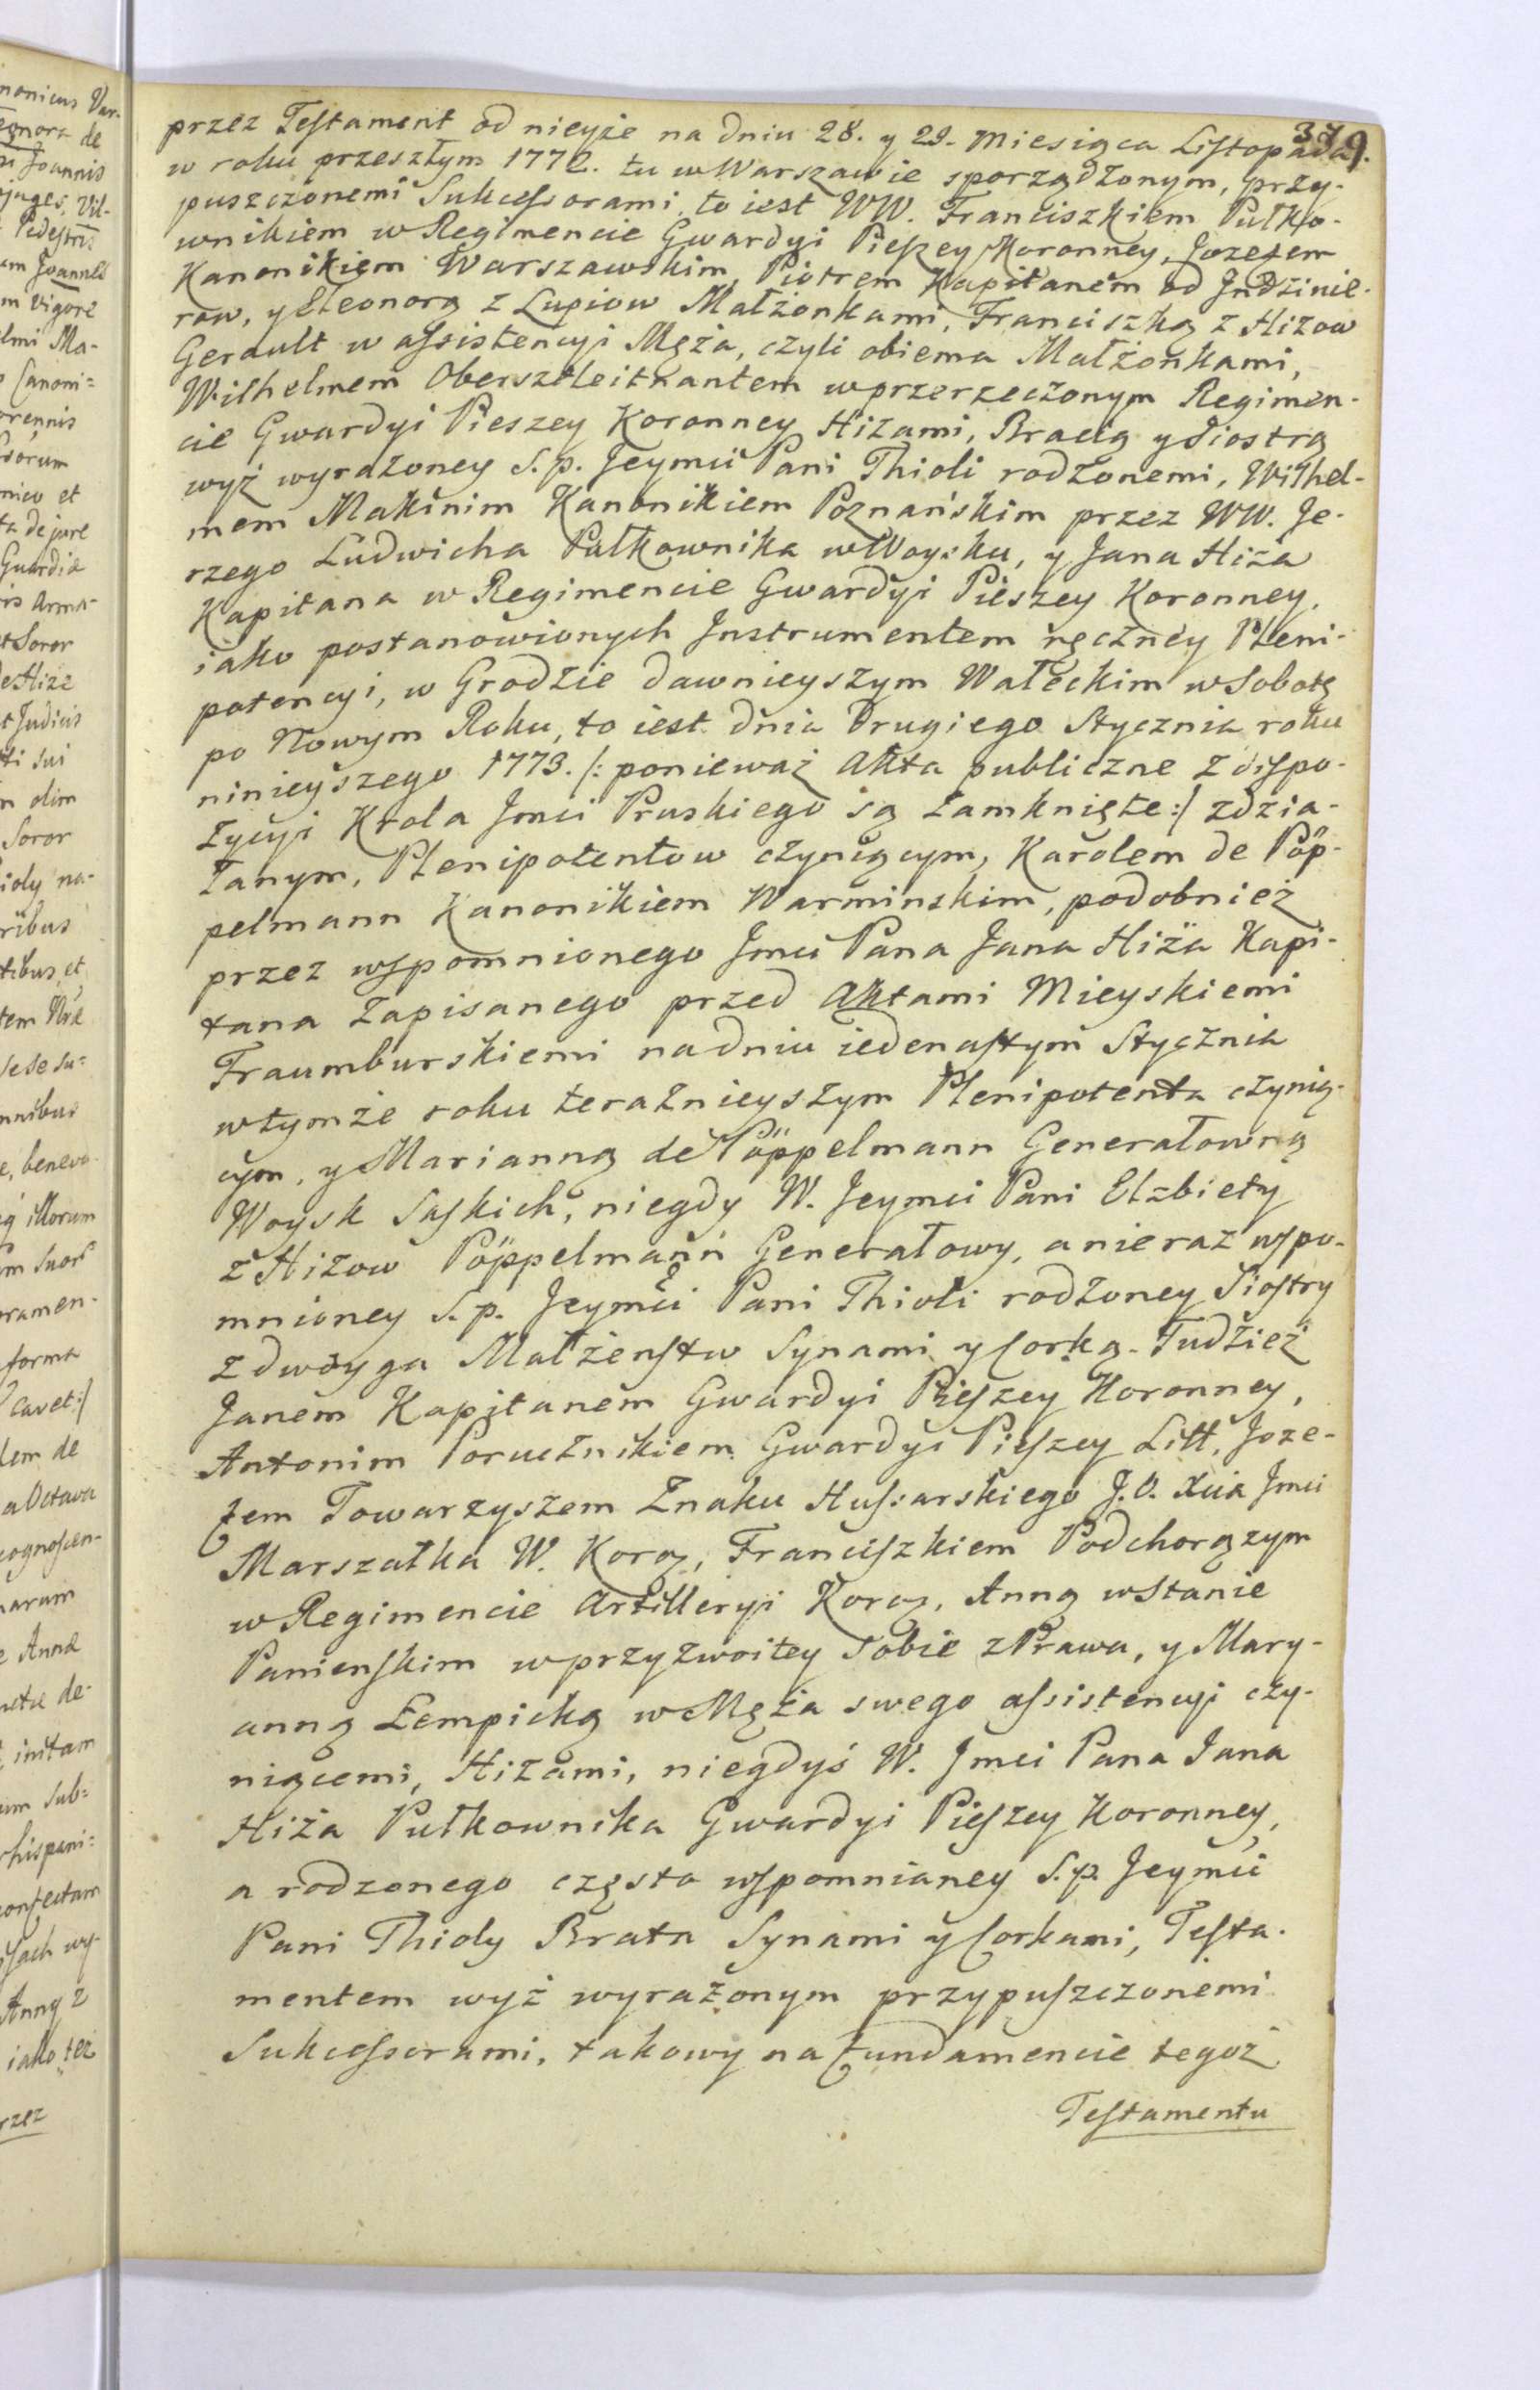 379.
przez Testament od nieyże na dniu 28. y 29. Miesiąca Listopada
w roku przeszłym 1772. tu w Warszawie sporządzonym, przy-
puszczonemi Sukcessorami, to iest WW. Franciszkiem Pułko-
wnikiem w Regimencie Gwardyi Pieszey Koronney, Jozefem
Kanonikiem Warszawskim, Piotrem Kapitanem od Indzinie-
row, y Eleonorą z Lupiow Małżonkami, Franciszką z Hizow
Gerault w assistencyi Męża, czyli obiema Małżonkami,
Wilhelmem Obersztleitnantem w przerzeczonym Regimen-
cie Gwardyi Pieszey Koronney Hizami, Bracią y Siostrą
wyż wyrażoney S. p. Jeymci Pani Thioli rodzonemi, Wilhel-
mem Makinim Kanonikiem Poznańskim przez WW. Je-
rzego Ludwicha Pułkownika w Woysku, y Jana Hiża
Kapitana w Regimencie Gwardyi Pieszey Koronney,
iako postanowionych Jnstrumentem ręczney Pleni-
potencyi, w Grodzie dawnieyszym Wałeckim w Sobotę
po Nowym Roku, to iest dnia Drugiego Stycznia roku
ninieyszego 1773. /: ponieważ Akta publiczne z dispo-
zycyi Krola Jmci Pruskiego są zamknięte :/ zdzia-
łanym, Plenipotentow czyniącym, Karolem de Pöp-
pelmann Kanonikiem Warminskim, podobnież
przez wspomnionego Jmci Pana Jana Hiża Kapi-
tana zapisanego przed Aktami Mieyskiemi
Fraumburskiemi na dniu iedenastym Stycznia
w tymże roku teraznieyszym Plenipotenta czynią-
cym, y Marianną de Pöppelmann Generałowną
Woysk Saskich, niegdy W. Jeymci Pani Elzbiety
z Hizow Pöppelmann Generałowy, a nieraz wspo-
mnioney S. p. Jeymci Pani Thioli rodzoney Siostry
z dwoyga Małżenstw Synami y Corką. Tudzież
Janem Kapitanem Gwardyi Pieszey Koronney,
Antonim Porucznikiem Gwardyi Pieszey Litt, Joze-
fem Towarzyszem Znaku Hussarskiego J. O. Xcia Jmci
Marszałka W. Koro, Franciszkiem Podchorązym
w Regimencie Artilleryi Koro, Anną w Stanie
Panienskim w przyzwoitey Sobie z Prawa, y Mary-
anną Łempicką w Męża swego assistencyi czy-
niącemi, Hizami, niegdyś W. Jmci Pana Jana
Hiża Pułkownika Gwardyi Pieszey Koronney,
a rodzonego często wspomnianey S. p. Jeymci
Pani Thioly Brata Synami y Corkami, Testa-
mentem wyż wyrażonym przypuszczonemi
Sukcessorami, takowy na fundamencie tegoż
Testamentu